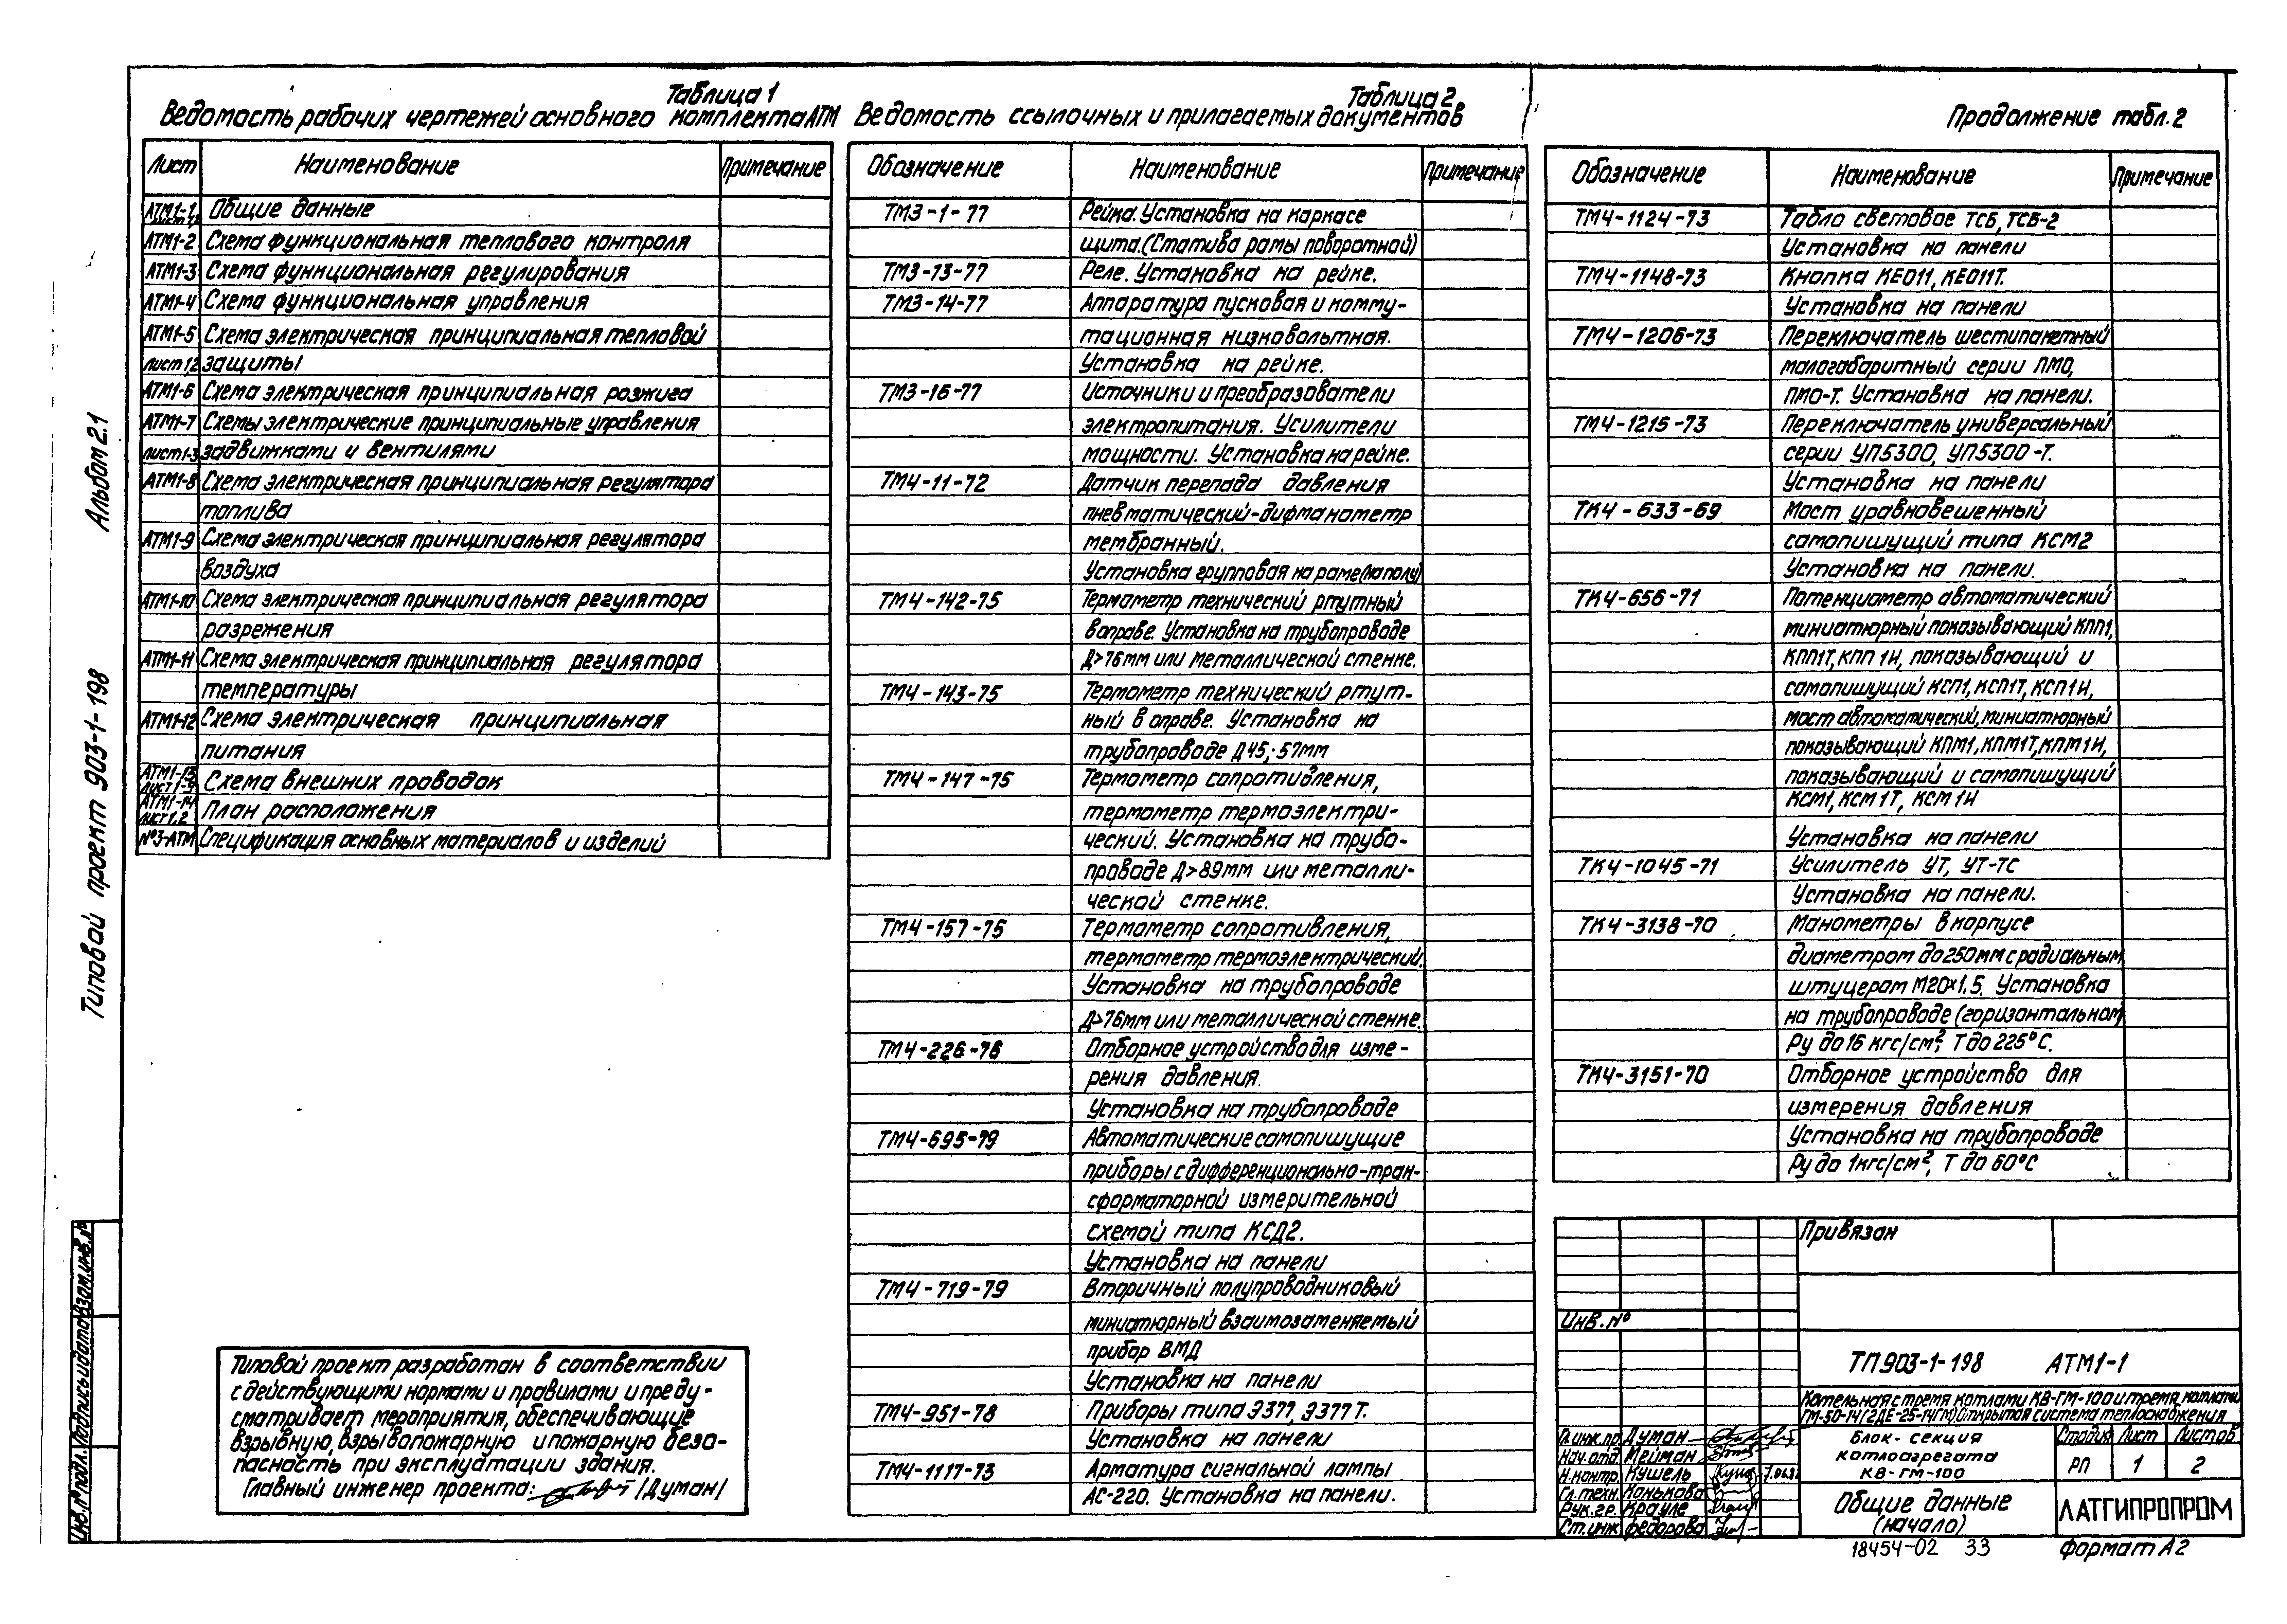 Таблица 1
Ведомость рабочих чертежей основного комплекта АТМ
Лист Наименование Примечание
АТМ1-1 Общие данные
АТМ1-2 Схема функциональная теплового контроля
АТМ1-3 Схема функциональная регулирования
АТМ1-4 Схема функциональная управления
АТМ1-5 Схема электрическая принципиальная тепловой
лист 1,2 защиты
АТМ1-6 Схема электрическая принципиальная розжига
АТМ1-7 Схемы электрические принципиальные управления
лист1-3 задвижками и вентилями
АТМ1-8 Схема электрическая принципиальная регулятора
топлива
АТМ1-9 Схема электрическая принципиальная регулятора
воздуха
АТМ1-10 Схема электрическая принципиальная регулятора
разрежения
АТМ1-11 Схема электрическая принципиальная регулятора
температуры
АТМ1-12 Схема электрическая принципиальная
питания
АТМ1-13
лист 1-5 Схема внешних проводок
АТМ1-14
лист 1,2 План расположения
№3-АТМ Спецификация основных материалов и изделий
Таблица 2
Ведомость ссылочных и прилагаемых документов
Обозначение Наименование Примечание
ТМ3-1-77 Рейка. Установка на каркасе
щита.(Статива рамы поворотной)
ТМ3-13-77 Реле. Установка на рейке.
ТМ3-14-77 Аппаратура пусковая и комму-
тационная низковольтная.
Установка на рейке.
ТМ3-16-77 Источники и преобразователи
электропитания. Усилители
мощности. Установка на рейке.
ТМ4-11-72 Датчик перепада давления
пневматический-дифманометр
мембранный.
Установка групповая на раме (на полу)
ТМ4-142-75 Термометр технический ртутный
в оправе. Установка на трубопроводе
Д>76мм или металлической стенке.
ТМ4-143-75 Термометр технический ртут-
ный в оправе. Установка на
трубопроводе Д45; 57мм
ТМ4-147-75 Термометр сопротивления,
термометр термоэлектри-
ческий. Установка на трубо-
проводе Д>89мм или металли-
ческой стенке.
ТМ4-157-75 Термометр сопротивления,
термометр термоэлектрический.
Установка на трубопроводе
Д>76мм или металлической стенке.
ТМ4-226-76 Отборное устройство для изме-
рения давления.
Установка на трубопроводе
ТМ4-695-79 Автоматические самопишущие
приборы с дифференциально-тран-
сформаторной измерительной
схемой типа КСД2.
Установка на панели
ТМ4-719-79 Вторичный полупроводниковый
миниатюрный взаимозаменяемый
прибор ВМД
Установка на панели
ТМ4-951-78 Приборы типа Э377, Э377Т.
Установка на панели
ТМ4-1117-73 Арматура сигнальной лампы
АС-220. Установка на панели.
Продолжение табл. 2
Обозначение Наименование Примечание
ТМ4-1124-73 Табло световое ТСБ, ТСБ-2
Установка на панели
ТМ4-1148-73 Кнопка КЕ011, КЕ011Т.
Установка на панели
ТМ4-1206-73 Переключатель шестипакетный
малогабаритный серии ПМО,
ПМО-Т. Установка на панели.
ТМ4-1215-73 Переключатель универсальный
серии УП5300, УП5300-Т.
Установка на панели
ТК4-633-69 Мост уравновешенный
самопишущий типа КСМ2
Установка на панели.
ТК4-656-71 Потенциометр автоматический
миниатюрный показывающий КПП1,
КПП1Т, КПП 1И, показывающий и
самопишущий КСП1, КСП1Т, КСП1И,
мост автоматический, миниатюрный
показывающий КПМ1, КПМ1Т, КПМ1И,
показывающий и самопишущий
КСМ1, КСМ1Т, КСМ1И
Установка на панели
ТК4-1045-71 Усилитель УТ, УТ-ТС
Установка на панели.
ТК4-3138-70 Манометры в корпусе
диаметром до 250мм с радиальным
штуцером М20×1,5. Установка
на трубопроводе (горизонтальном)
Ру до 16 кгс/см², Т до 225°С.
ТК4-3151-70 Отборное устройство для
измерения давления
Установка на трубопроводе
Ру до 1кгс/см², Т до 60°С
Альбом 2.1
Типовой проект 903-1-198
Инв.№ подл. Подпись и дата Взам.инв.№
Типовой проект разработан в соответствии
с действующими нормами и правилами и преду-
сматривает мероприятия, обеспечивающие
взрывную, взрывопожарную и пожарную безо-
пасность при эксплуатации здания.
Главный инженер проекта: /Думан/
Привязан
Инв. №
ТП 903-1-198 АТМ1-1
Котельная с тремя котлами КВ-ГМ-100 и тремя котлами
ГМ-50-14/2ДЕ-25-14ГМ). Открытая система теплоснабжения
Гл.инж.пр. Думан
Нач.отд. Мейман
Н.контр. Кушель
Гл.техн. Конькова
Рук.гр. Крауле
Ст.инж. Федорова
Блок-секция
котлоагрегата
КВ-ГМ-100
Стадия Лист Листов
РП 1 2
Общие данные
(начало)
ЛАТГИПРОПРОМ
18454-02 33 Формат А2